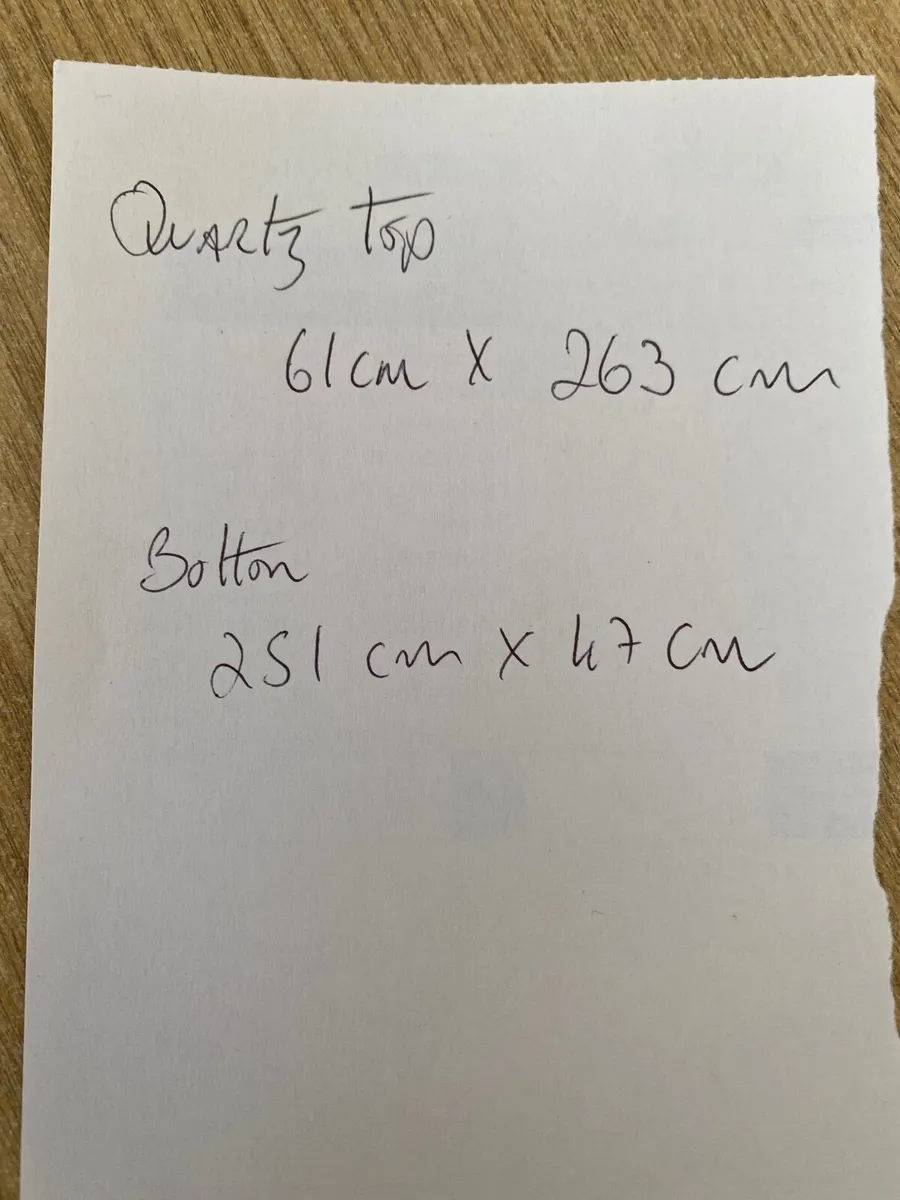 Quartz Top
61cm X 263 cm
Botton
251 cm x 47 cm